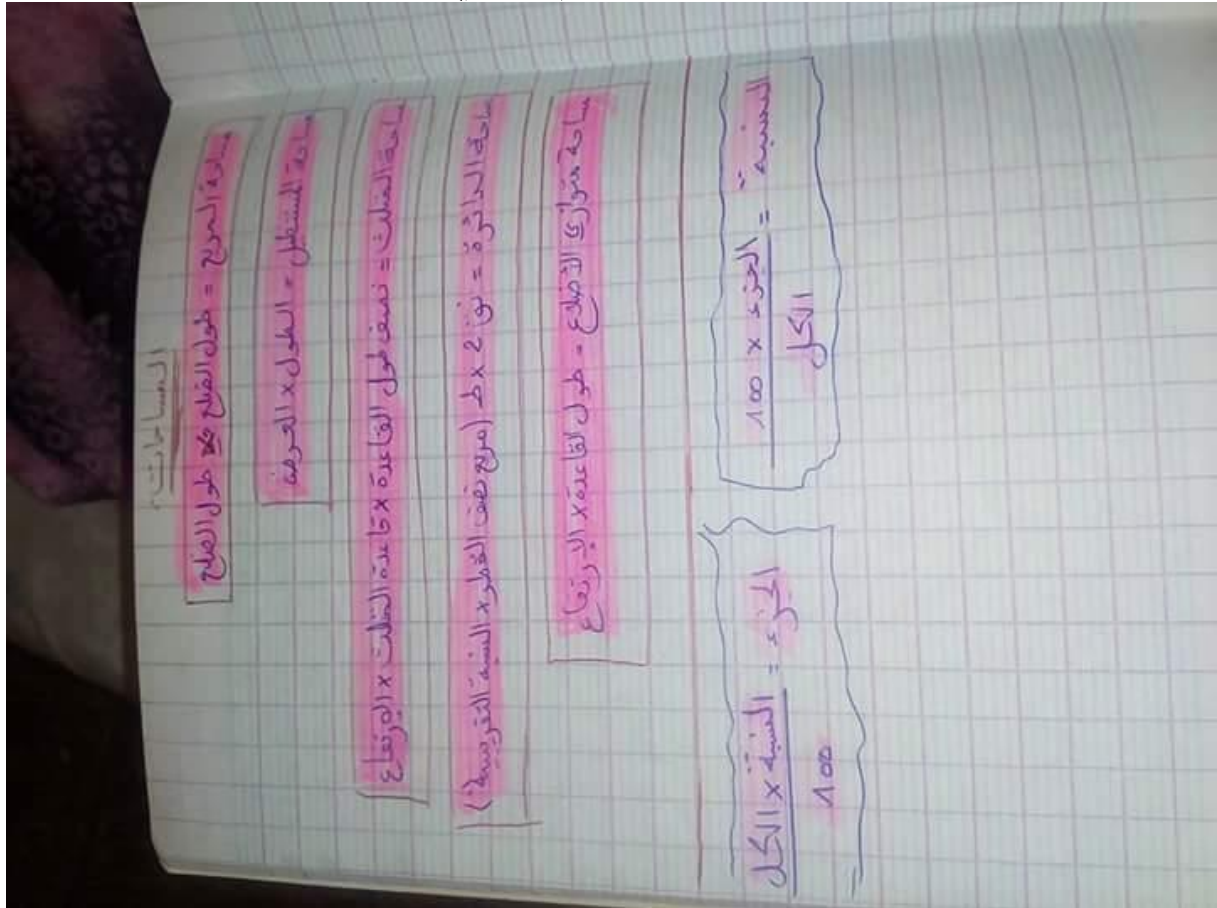 المساحات
مساحة المربع = طول الضلع × طول الضلع
مساحة المستطيل = الطول × العرض
مساحة المثلث = نصف طول القاعدة × قاعدة المثلث × الارتفاع
مساحة الدائرة = نق 2 × ط (مربع نصف القطر × النسبة التقريبية)
مساحة متوازي الأضلاع = طول القاعدة × الارتفاع
النسبة = الجزء × 100
الكل
الجزء = النسبة × الكل
100